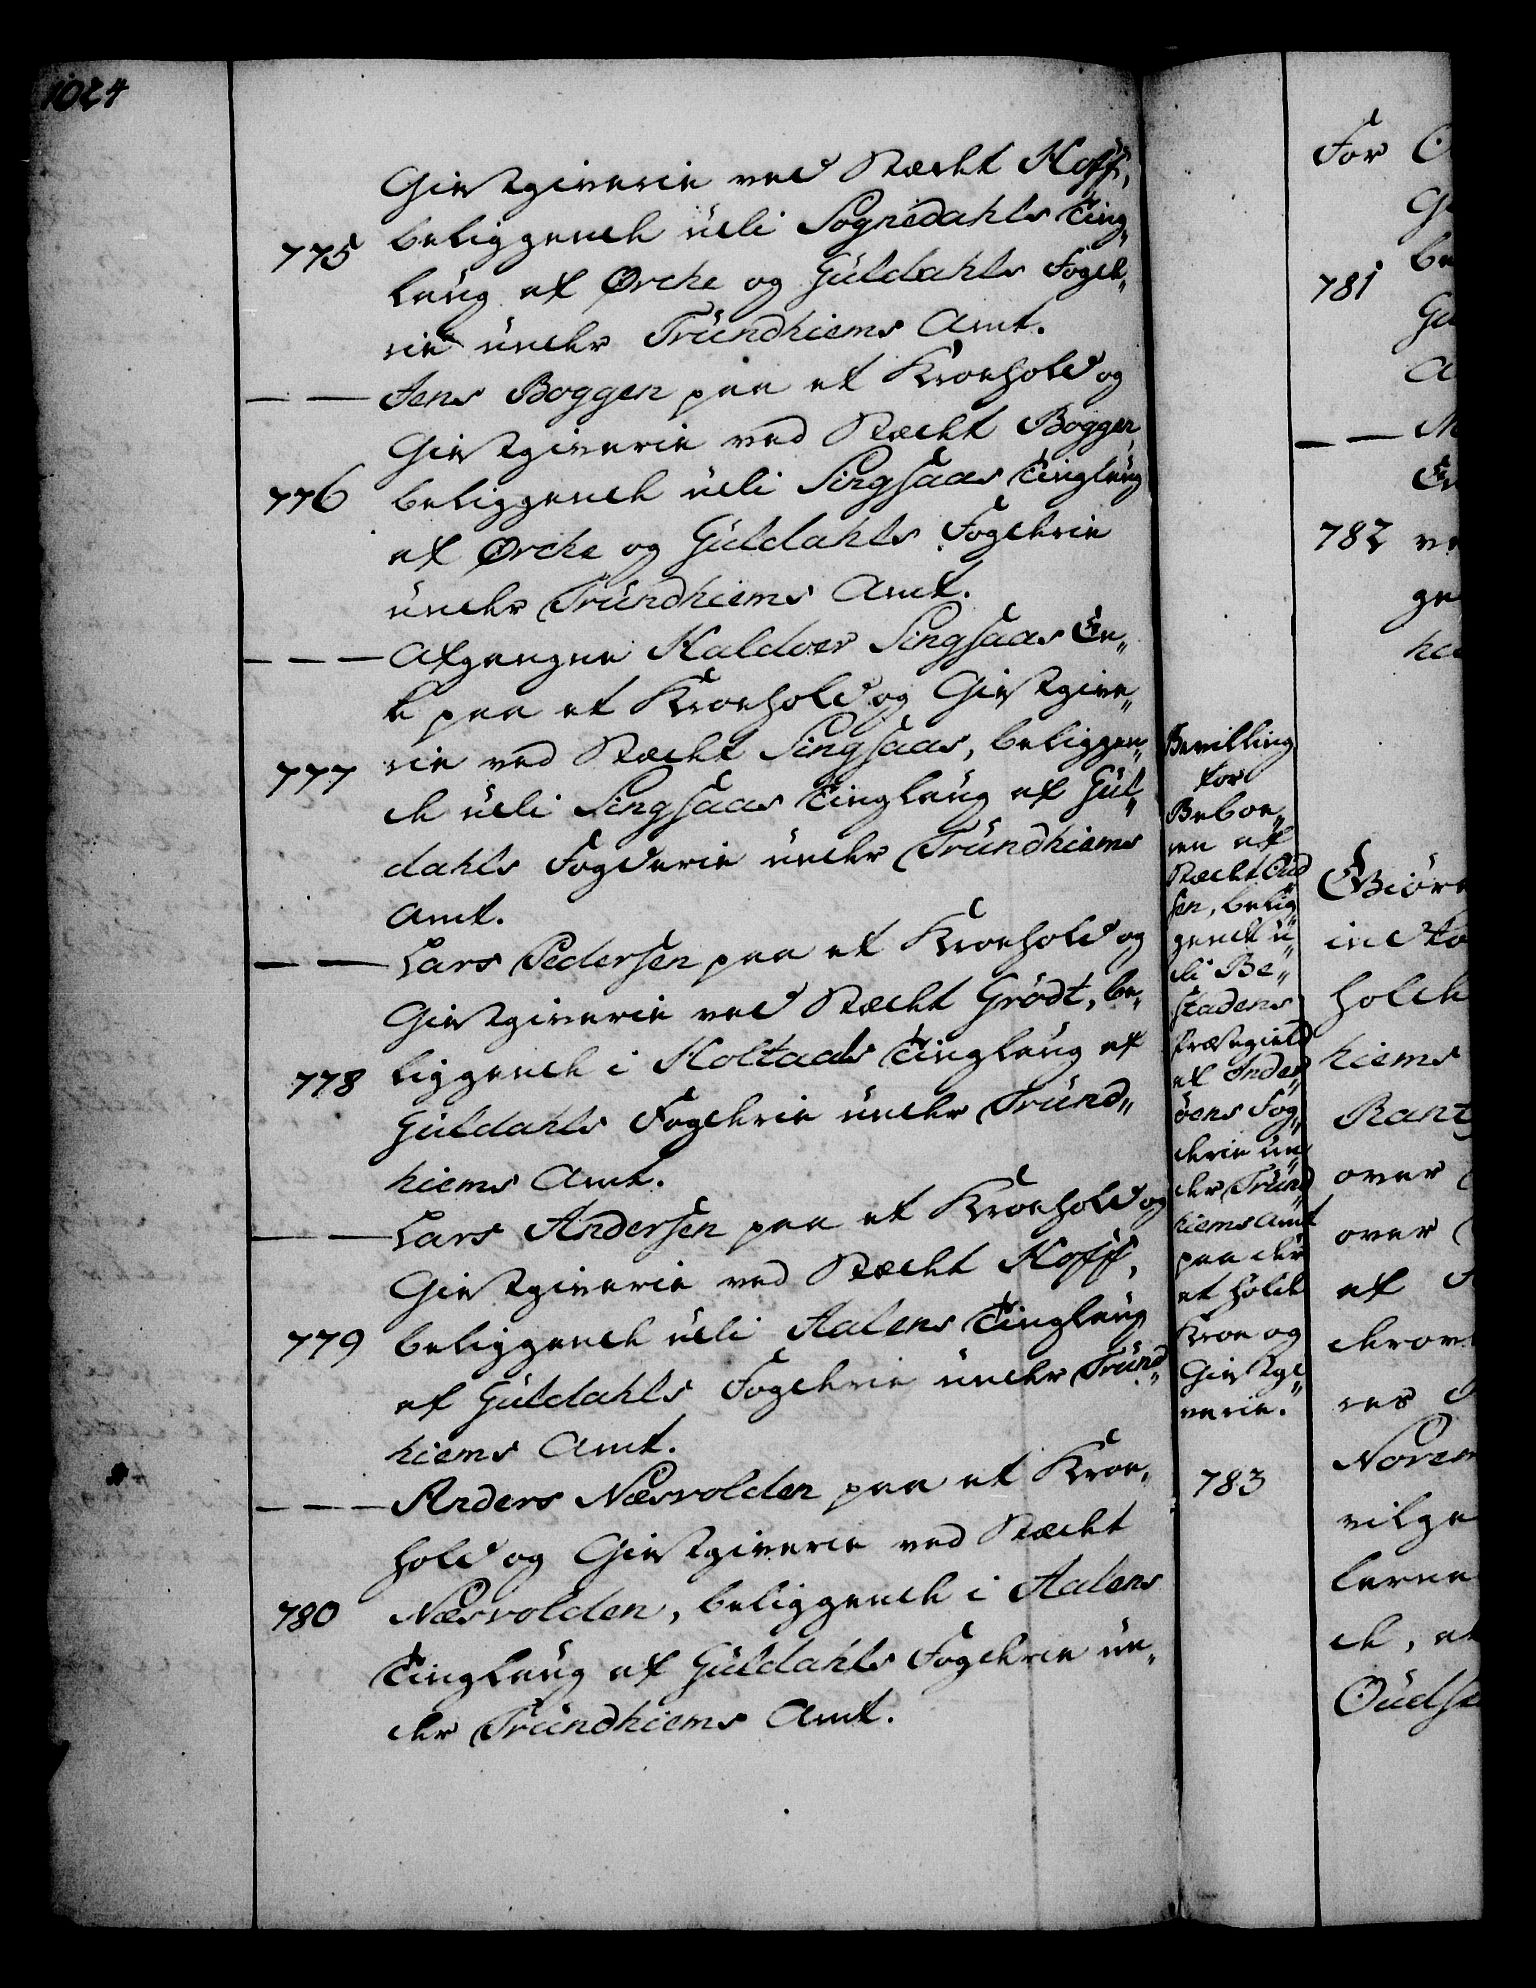 1024
Giestgiverie ved Stædet Hoff,
775 beliggende udi Sognedahls Ting„
laug af Ørche og Güldahls Foged„
rie under Trundhiems Amt.
— — Jens Boggen paa et Kroehold og
Giestgiverie ved Stædet Boggen,
776 beliggende udi Singsaas Tinglaug
af Ørche og Güldahls Fogderie
under Trundhiems Amt.
— — Afgangne Haldoer Singsaas En„
ke paa et Kroehold og Giestgive„
777 rie ved Stædet Singsaas, beliggen„
de udi Singsaas Tinglaug af Gül„
dahls Fogderie under Trundhiems
Amt.
— — Lars Pedersen paa et Kroehold og
Giestgiverie ved Stædet Grödt, be„
778 liggende i Holtaals Tinglaug af
Güldahls Fogderie under Trund„
hiems Amt.
— — Lars Andersen paa et Kroehold og
Giestgiverie ved Stædet Hoff,
779 beliggende udi Aalens Tinglaug
af Güldahls Fogderie under Trund„
hiems Amt.
— — Anders Næsvolden paa et Kroe„
hold og Giestgiverie ved Stædet
780 Næsvolden, beliggende i Aalens
Tinglaug af Güldahls Fogderie un„
der Trundhiems Amt.
Bevilling
for
Beboe„
ren af
Stædet Oud
sen, belig„
gende u„
di Be„
stadens
Præstegield
af Inder„
öens Fog„
derie un„
der Trund„
hiems Amt
paa der
at holde
Kroe og
Giestgi„
verie.
783
For
781
— —
782
Giöre
holde
hiems
Rantz
over
over
af
Novem
Oudse